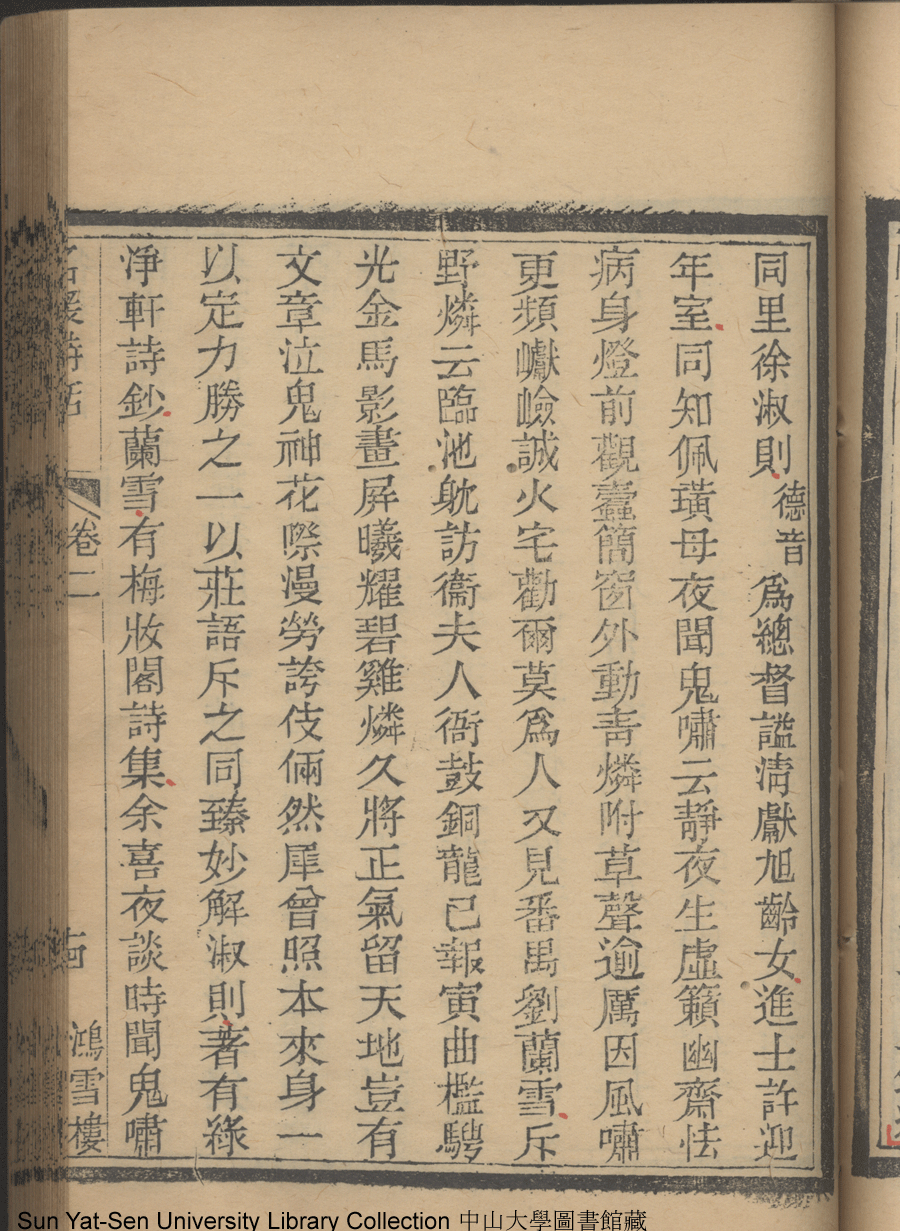 同里徐淑則德音為總督謚清獻旭齡女進士許迎
年室同知佩璜母夜聞鬼嘯云靜夜生虛籟幽齋怯
病身燈前觀蠹簡窗外動青燐附草聲逾厲因風嘯
更頻巘嶮誠火宅勸爾莫為人又見番禺劉蘭雪斥
野燐云臨池躭訪衞夫人衙鼓銅龍已報寅曲檻騁
光金馬影畫屏曦耀碧雞燐久將正氣留天地豈有
文章泣鬼神花嘐漫勞誇伎倆然犀曾照本來身一
以定力勝之一以莊語斥之同臻妙解淑則著有綠
淨軒詩鈔蘭雪有梅妝閣詩集余喜夜談時聞鬼嘯
名媛詩話 卷二 鴻雪樓
Sun Yat-Sen University Library Collection 中山大學圖書館藏